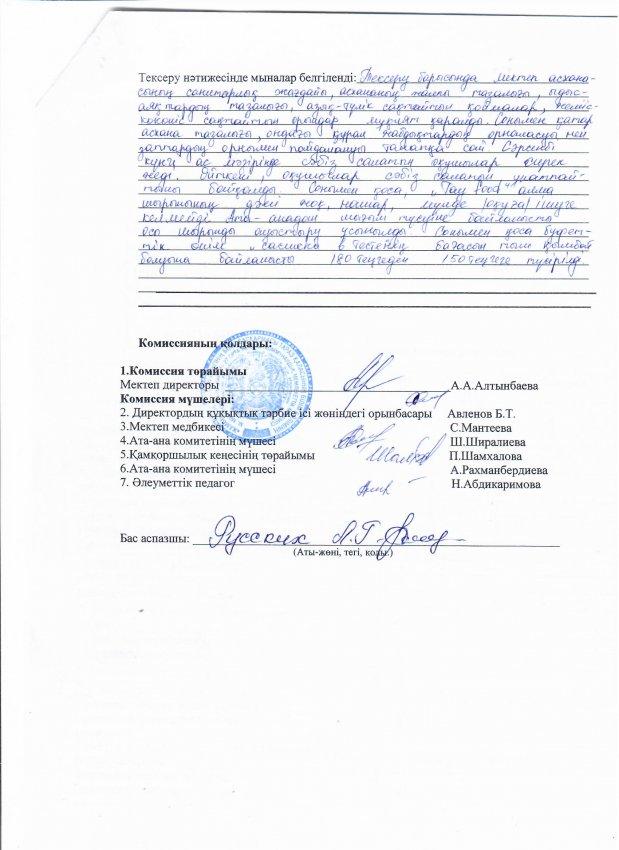 Тексеру нәтижесінде мыналар белгіленді: Тексеру барысында мектеп асхана-
сының санитарлық жағдайы, асхананың жалпы тазалығы, ыдыс-
аяқтардың тазалығы, азық-түлік сақтайтын қоймалар, жеміс-
көкөніс сақтайтын орындар мұқият қаралды. Сонымен қатар
асхана тазалығы, ондағы құрал жабдықтардың орналасуы мен
заттардың орнымен пайдалануы талапқа сай. Сәрсенбі
күнгі ас мәзірінде сәбіз салатын оқушылар сирек
жеді. Өйткені, оқушылар сәбіз салатын ұнатпай-
тыны байқалды. Сонымен қоса, „Тау food" алма
шырынының дәмі жоқ, нашар, мүлде ішуге
келмейді. Ата-анадан шағым түсуіне байланысты
осы шырынды ауыстыру ұсынылды. Сонымен қоса буфет-
тік өнім „сосиска в тесте"нің бағасы тым қымбат
болуына байланысты 180 теңгеден 150 теңгеге түсірілді
Комиссияның қолдары:
1.Комиссия төрайымы
Мектеп директоры А.А.Алтынбаева
Комиссия мүшелері:
2. Директордың құқықтық тәрбие ісі жөніндегі орынбасары Авленов Б.Т.
3.Мектеп медбикесі С.Мантеева
4.Ата-ана комитетінің мүшесі Ш.Ширалиева
5.Қамқоршылық кеңесінің төрайымы П.Шамхалова
6.Ата-ана комитетінің мүшесі А.Рахманбердиева
7. Әлеуметтік педагог Н.Абдикаримова
Бас аспазшы: Русских Л.Г.
(Аты-жөні, тегі, қолы.)